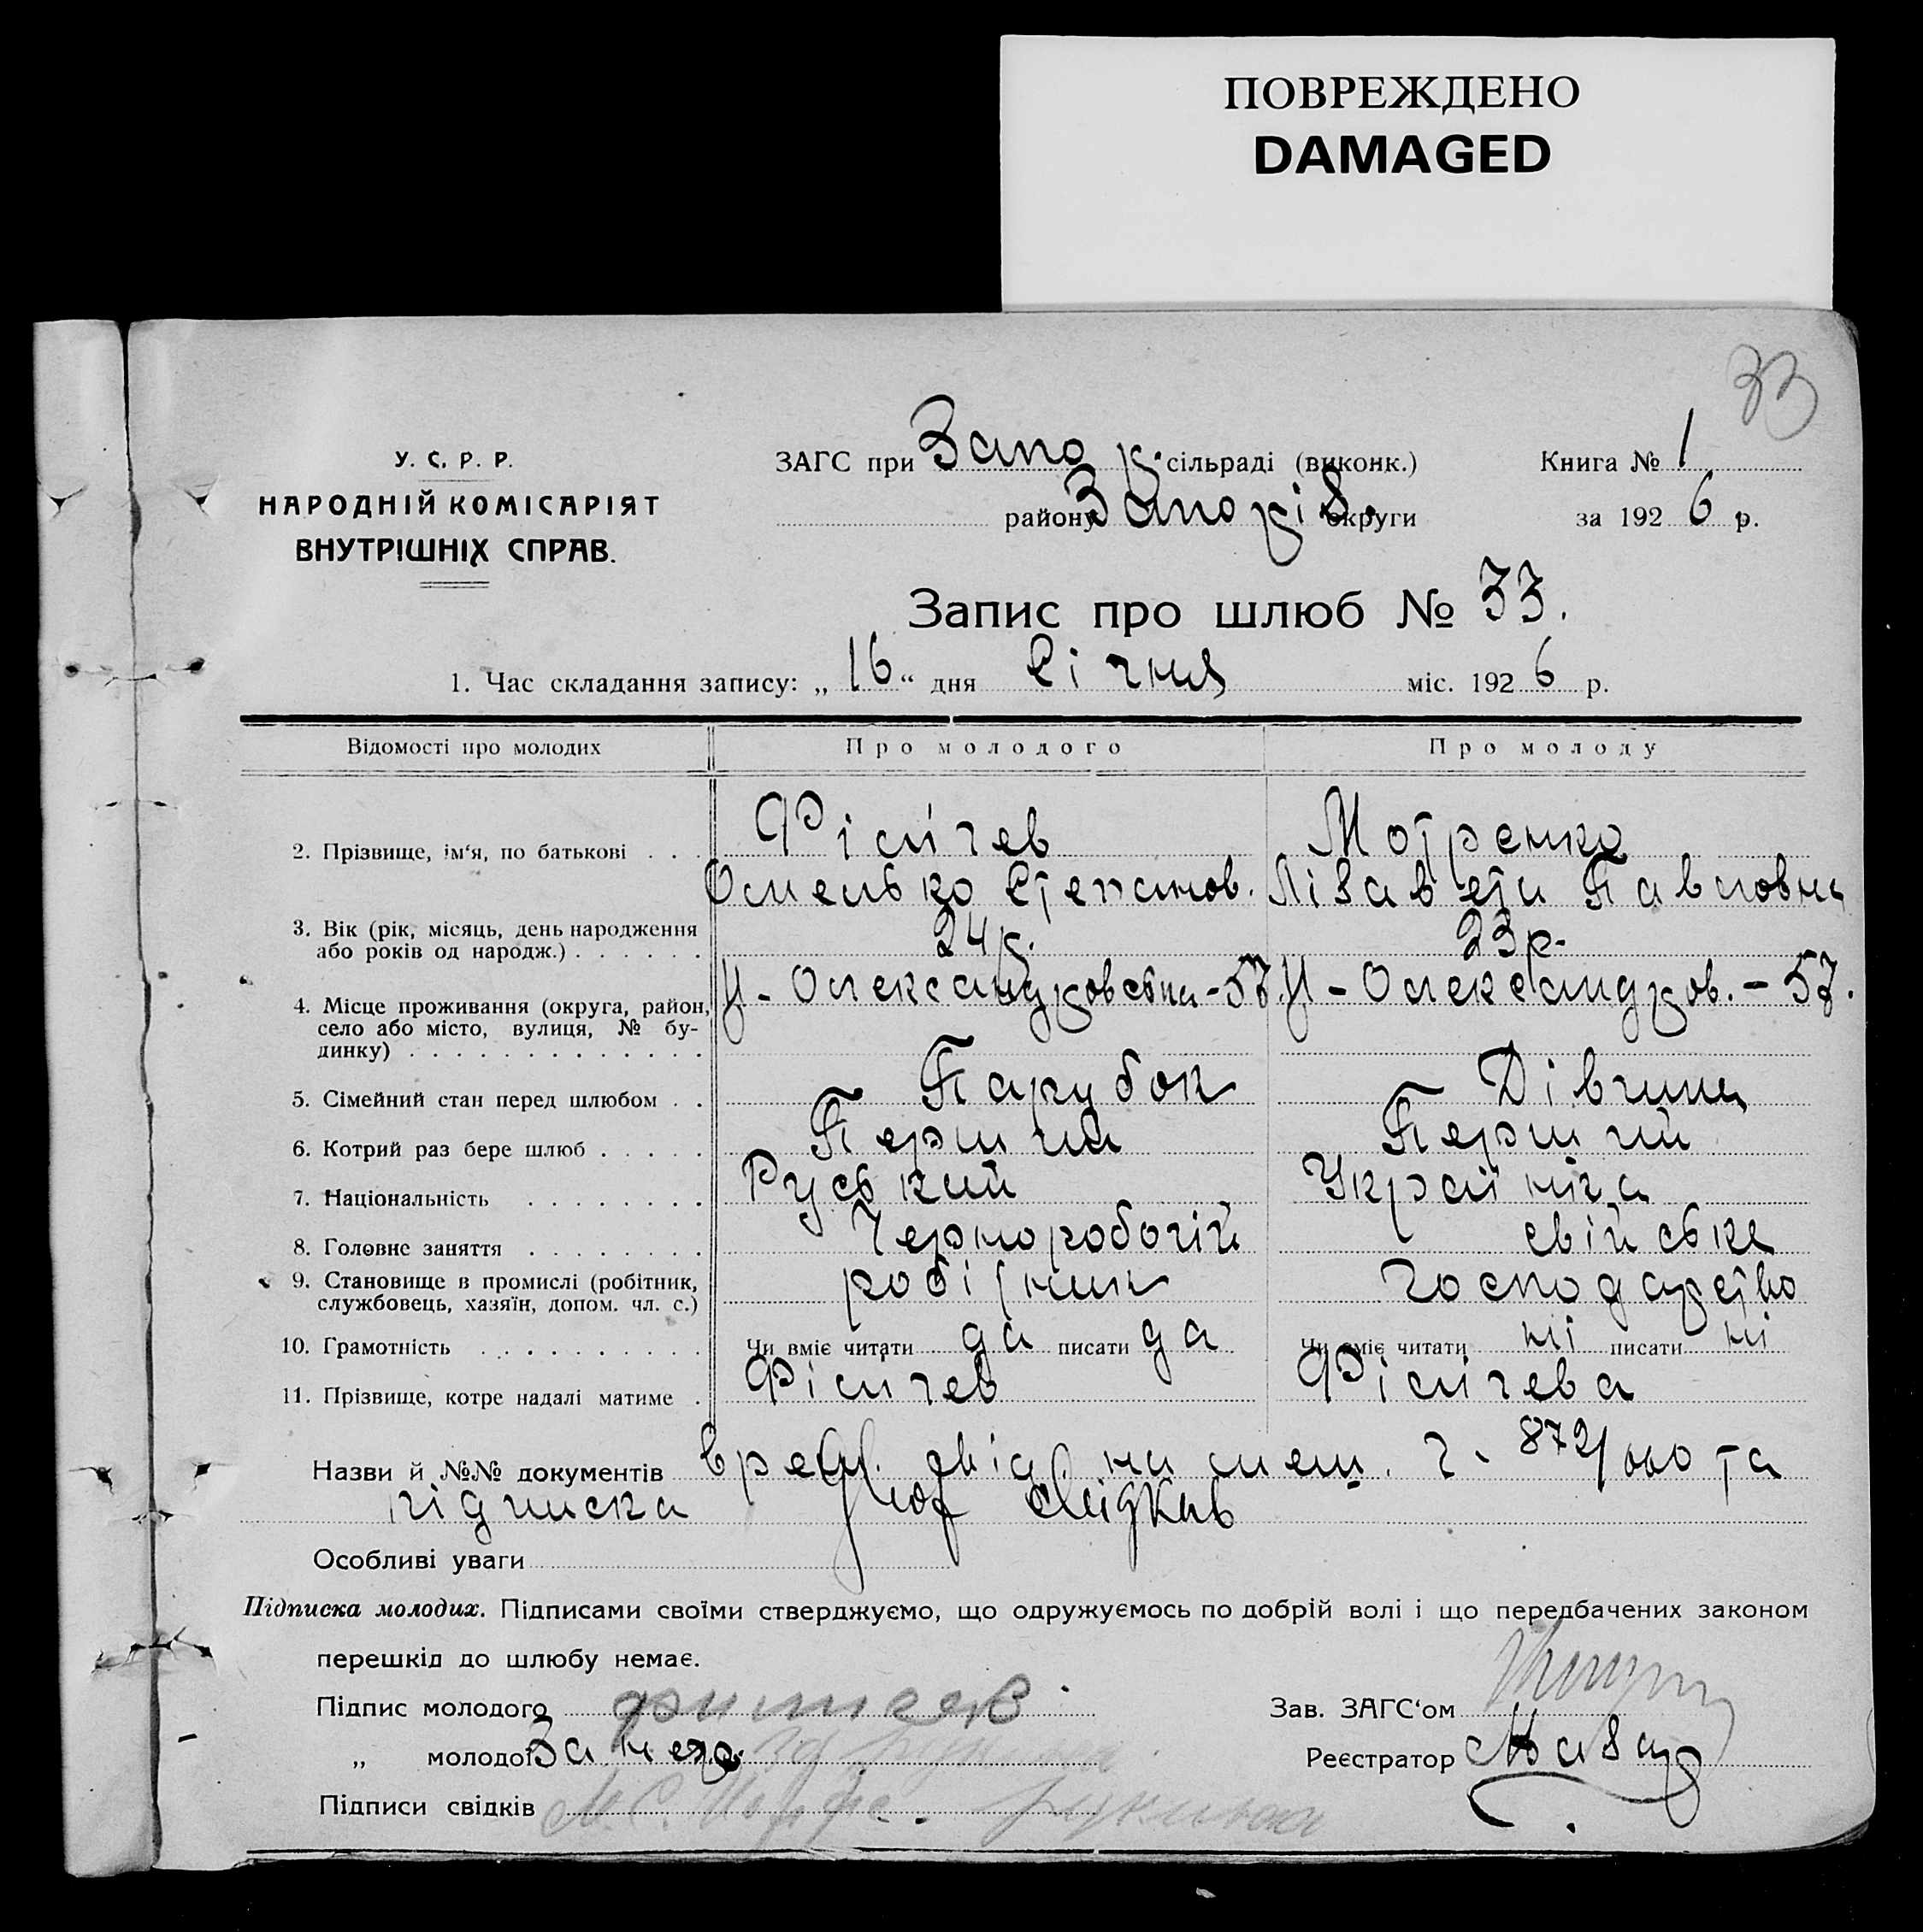 ПОВРЕЖДЕНО
DAMAGED
33
У. С. Р. Р.
НАРОДНІЙ КОМІСАРІЯТ
ВНУТРІШНІХ СПРАВ.
ЗАГС при Запор. сільраді (виконк.)
району Запоріз. округи
Книга № 1
за 1926 р.
Запис про шлюб № 33.
1. Час складання запису: „16“ дня Січня міс. 1926 р.
Відомості про молодих
Про молодого
Про молоду
2. Прізвище, ім‘я, по батькові
Фісичев
Омелько Степанов.
Мотренко
Лізавета Павловна
3. Вік (рік, місяць, день народження
або років од народж.)
24 р.
23 р.
4. Місце проживання (округа, район,
село або місто, вулиця, № бу-
динку)
Н-Олександровська-57.
Н-Олександров.-57.
5. Сімейний стан перед шлюбом
Парубок
Дівчина
6. Котрий раз бере шлюб
Перший
Перший
7. Національність
Руський
Українка
8. Головне заняття
Черноробочій
свійське
9. Становище в промислі (робітник,
службовець, хазяїн, допом. чл. с.)
робітник
господарство
10. Грамотність
Чи вміє читати да писати да
Чи вміє читати ні писати ні
11. Прізвище, котре надалі матиме
Фісичев
Фісичева
Назви й №№ документів
на меш. ч. 872 та
підписка свідків
Особливі уваги
Підписка молодих. Підписами своїми стверджуємо, що одружуємось по добрій волі і що передбачених законом
перешкід до шлюбу немає.
Підпис молодого
„ молодої За неї
Підписи свідків
Зав. ЗАГС‘ом
Реєстратор